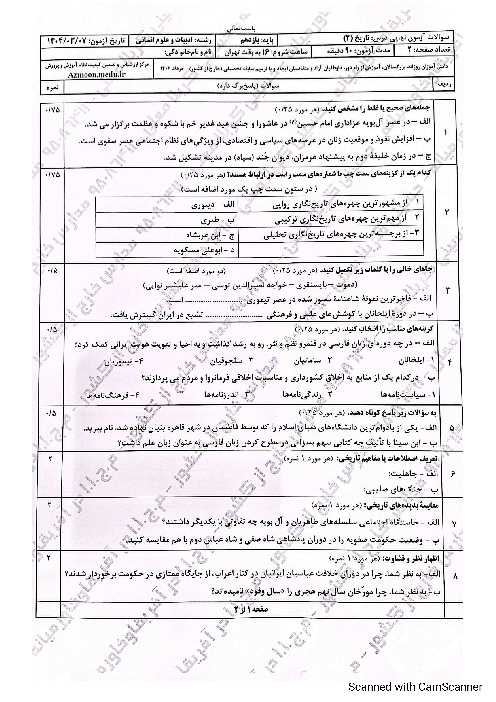 باسمه تعالی
سؤالات آزمون نهایی درس: تاریخ (۲) پایه: یازدهم رشته: ادبیات و علوم انسانی تاریخ آزمون: ۱۴۰۴/۰۳/۰۷
تعداد صفحه: ۲ مدت آزمون: ۹۰ دقیقه ساعت شروع: ۱۶ به وقت تهران نام و نام‌خانوادگی:
مرکز ارزشیابی و تضمین کیفیت نظام آموزش و پرورش
Azmoon.medu.ir
ردیف سؤالات (پاسخ‌برگ دارد) نمره
۱ جمله‌های صحیح یا غلط را مشخص کنید. (هر مورد ۰/۲۵) ۰/۷۵
الف – در عصر آل‌بویه عزاداری امام حسین (ع) در عاشورا و جشن عید غدیر خم با شکوه و عظمت برگزار می شد.
ب – افزایش نفوذ و موقعیت زنان در عرصه‌های سیاسی و اقتصادی، از ویژگی‌های نظام اجتماعی عصر صفوی است.
ج – در زمان خلیفه دوم به پیشنهاد هرمزان، دیوان جُند (سپاه) در مدینه تشکیل شد.
۲ کدام یک از گزینه‌های سمت چپ با شماره‌های سمت راست در ارتباط هستند؟ (هر مورد ۰/۲۵) ۰/۷۵
( در ستون سمت چپ یک مورد اضافه است)
۱ – از مشهورترین چهره‌های تاریخ‌نگاری روایی الف – دینوری
۲ – از مهم‌ترین چهره‌های تاریخ‌نگاری ترکیبی ب – طبری
۳ – از برجسته‌ترین چهره‌های تاریخ‌نگاری تحلیلی ج – ابن عربشاه
د – ابوعلی مسکویه
۳ جاهای خالی را با کلمات زیر تکمیل کنید. (هر مورد ۰/۲۵) (دو مورد اضافه است) ۰/۵
(دموت – بایسنقری – خواجه نصیرالدین توسی – میر علی‌شیر نوایی)
الف – فاخرترین نمونهٔ شاهنامهٔ مصور شده در عصر تیموری ............ است.
ب – در دورهٔ ایلخانان با کوشش های علمی و فرهنگی ............ تشیع در ایران گسترش یافت.
۴ گزینه‌های مناسب را انتخاب کنید. (هر مورد ۰/۲۵) ۰/۵
الف – در چه دوره ای زبان فارسی در قلمرو نظم و نثر، رو به رشد گذاشت و به احیا و تقویت هویت ایرانی کمک کرد؟
۱- ایلخانان ۲- سامانیان ۳- سلجوقیان ۴- تیموریان
ب – در کدام یک از منابع به اخلاق کشورداری و مناسبات اخلاقی فرمانروا و مردم می پردازند؟
۱- سیاست‌نامه‌ها ۲- زندگی‌نامه‌ها ۳- اندرزنامه‌ها ۴- فرهنگ‌نامه‌ها
۵ به سؤالات زیر پاسخ کوتاه دهید. (هر مورد ۰/۲۵) ۰/۵
الف – یکی از بادوام‌ترین دانشگاه‌های جهان اسلام را که توسط فاطمیان در شهر قاهره بنیان نهاده شد، نام ببرید.
ب – ابن سینا با تألیف چه کتابی سهم بسزایی در مطرح کردن زبان فارسی به عنوان زبان علم داشت؟
۶ تعریف اصطلاحات یا مفاهیم تاریخی: (هر مورد ۱ نمره) ۲
الف – جاهلیت:
ب – جنگ‌های صلیبی:
۷ مقایسهٔ پدیده‌های تاریخی: (هر مورد ۱ نمره) ۲
الف – خاستگاه اجتماعی سلسله‌های طاهریان و آل بویه چه تفاوتی با یکدیگر داشتند؟
ب – وضعیت حکومت صفویه را در دوران پادشاهی شاه صفی و شاه عباس دوم با هم مقایسه کنید.
۸ اظهار نظر و قضاوت: (هر مورد ۱ نمره) ۲
الف – به نظر شما، چرا در دوران خلافت عباسیان ایرانیان در کنار اعراب، از جایگاه ممتازی در حکومت برخوردار شدند؟
ب – به نظر شما، چرا مورخان سال نهم هجری را «سال وفود» نامیده‌اند؟
صفحه ۱ از ۲
Scanned with CamScanner